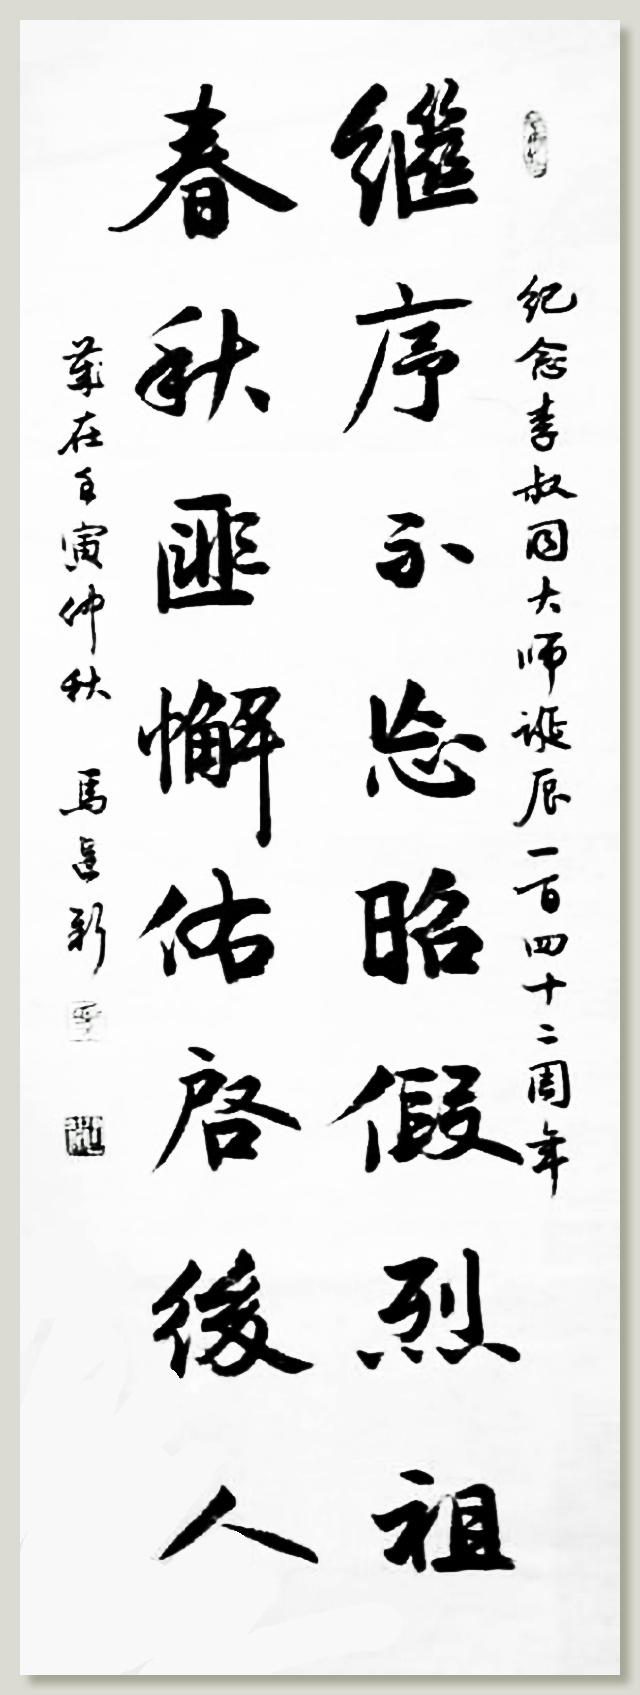 纪念李叔同大师诞辰一百四十二周年
继序不忘昭假烈祖
春秋匪懈佑启後人
岁在壬寅仲秋 馬新